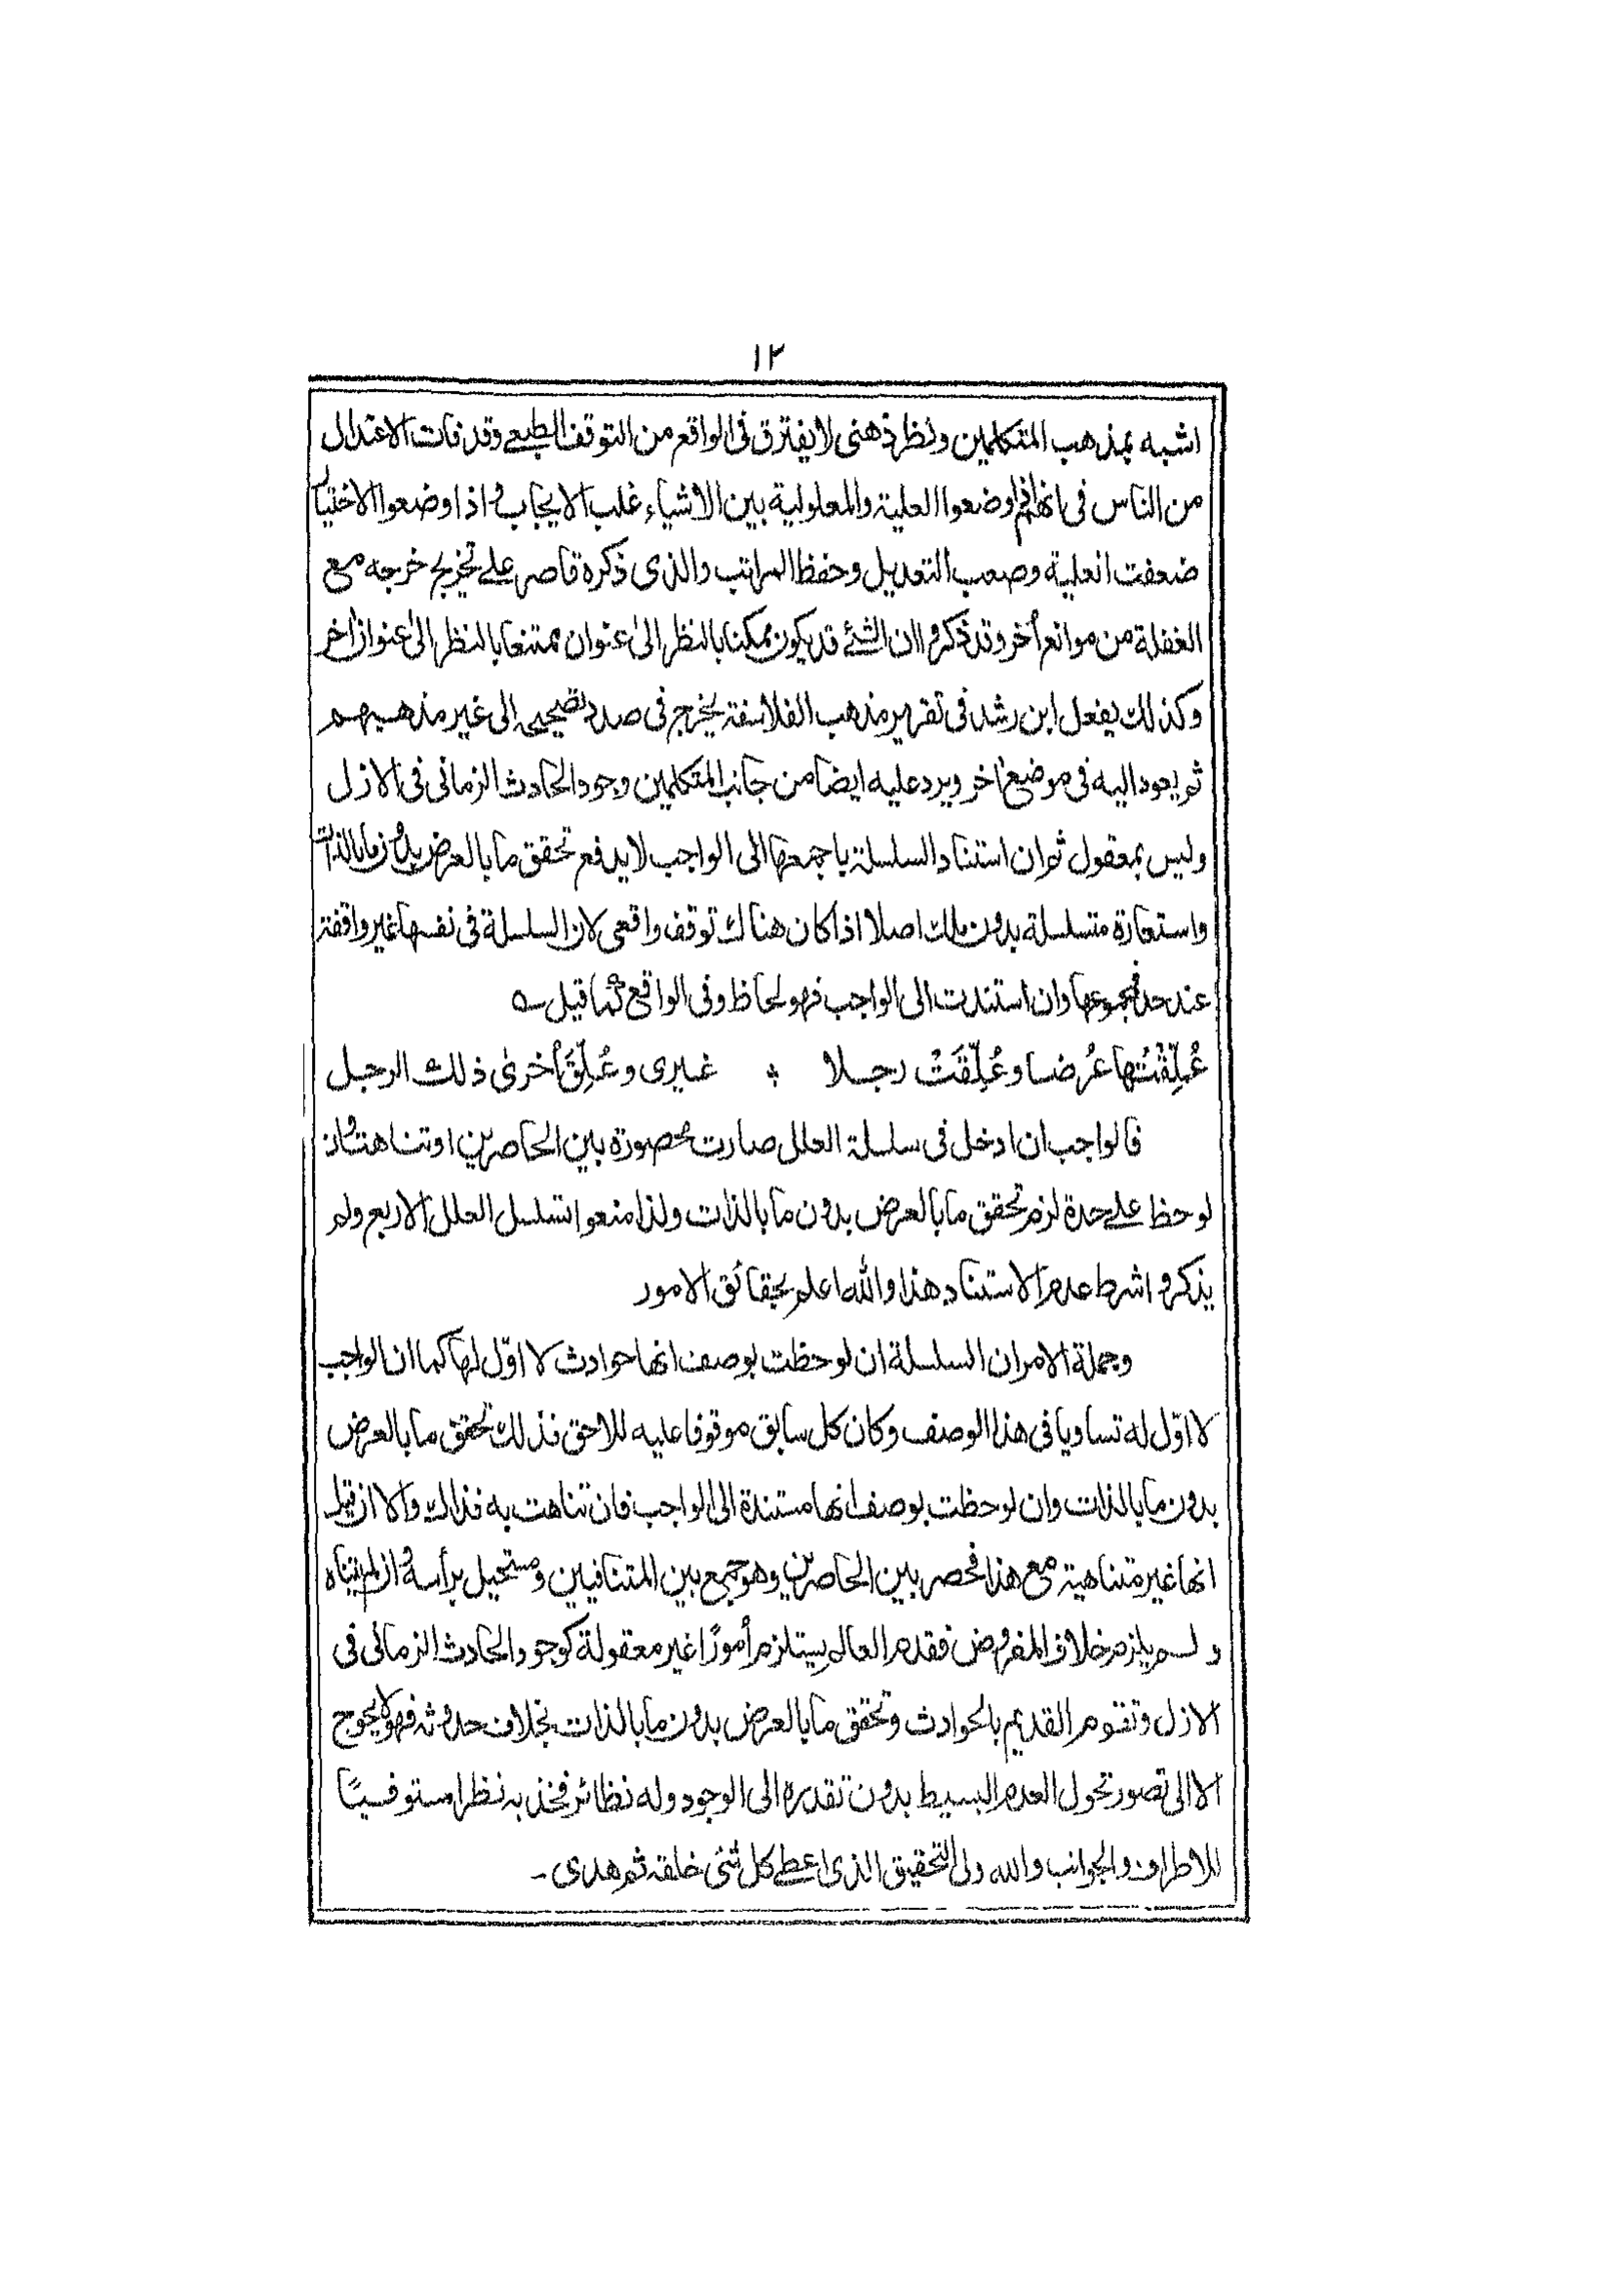 ١٢
اشبه بمذهب المتكلمين ونظر ذهنى لا يفترق فى الواقع من التوقف الطبعي وقد فات الاعتدال
من الناس فى انهم اذا وضعوا العلية والمعلولية بين الاشياء غلب الايجاب واذا وضعوا الاختيار
ضعفت العلية وصعب التعديل وحفظ المراتب والذى ذكره قاصر على تخريج خرجه مع
الغفلة من موانع أخر وقد ذكروا ان الشئ قد يكون ممكنا بالنظر الى عنوان ممتنعا بالنظر الى عنوان اخر
وكذلك يفعل ابن رشد فى تقرير مذهب الفلاسفة يخرج فى صدد تصحيحه الى غير مذهبهم
ثم يعود اليه فى موضع اخر ويرد عليه ايضا من جانب المتكلمين وجود الحادث الزمانى فى الازل
وليس بمعقول ثم ان استناد السلسلة باجمعها الى الواجب لا يدفع تحقق ما بالعرض بدون ما بالذات
واستعارة متسلسلة بدون ملك اصلا اذا كان هناك توقف واقعى لان السلسلة فى نفسها غير واقفة
عند حد ومجموعها وان استندت الى الواجب فهو لحاظ وفى الواقع كما قيل ـه
عُلِّقْتُها عُرضا وعُلِّقَتْ رجلا ؞ غيرى وعُلِّقَ أخرىٰ ذلك الرجل
فالواجب ان ادخل فى سلسلة العلل صارت محصورة بين الحاصرين او تناهت وان
لوحظ على حدة لزم تحقق ما بالعرض بدون ما بالذات ولذا منعوا تسلسل العلل الاربع ولم
يذكروا شرط عدم الاستناد هذا والله اعلم بحقائق الامور
وجملة الامر ان السلسلة ان لوحظت بوصف انها حوادث لا اوّل لها كما ان الواجب
لا اوّل له تساويا فى هذا الوصف وكان كل سابق موقوفا عليه للاحق فذلك تحقق ما بالعرض
بدون ما بالذات وان لوحظت بوصف انها مستندة الى الواجب فان تناهت به فذاك والا ان قيل
انها غير متناهية مع هذا فحصر بين الحاصرين وهو جمع بين المتنافيين ومستحيل برأسه وان لم يتناه
ولم يلزم خلاف المفروض فقدم العالم يستلزم أمورًا غير معقولة كوجود الحادث الزمانى فى
الازل وتقوم القديم بالحوادث وتحقق ما بالعرض بدون ما بالذات بخلاف حدوثه فهو لا يحوج
الا الى تصور تحول العدم البسيط بدون تقدره الى الوجود وله نظائر فخذ به نظرا مستوفيًا
للاطراف والجوانب والله ولى التحقيق الذى اعطى كل شئ خلقه ثم هدى ـ